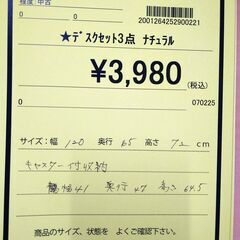 程度：中古
2001264252900221
0 0
★ﾃﾞｽｸｾｯﾄ3点 ﾅﾁｭﾗﾙ
¥3,980
(税込)
0 070225
サイズ：幅 120 奥行 65 高さ 72 cm
キャスター付収納
幅41 奥行 47 高さ 64.5
商品のサイズ、状態を よくご確認下さい。